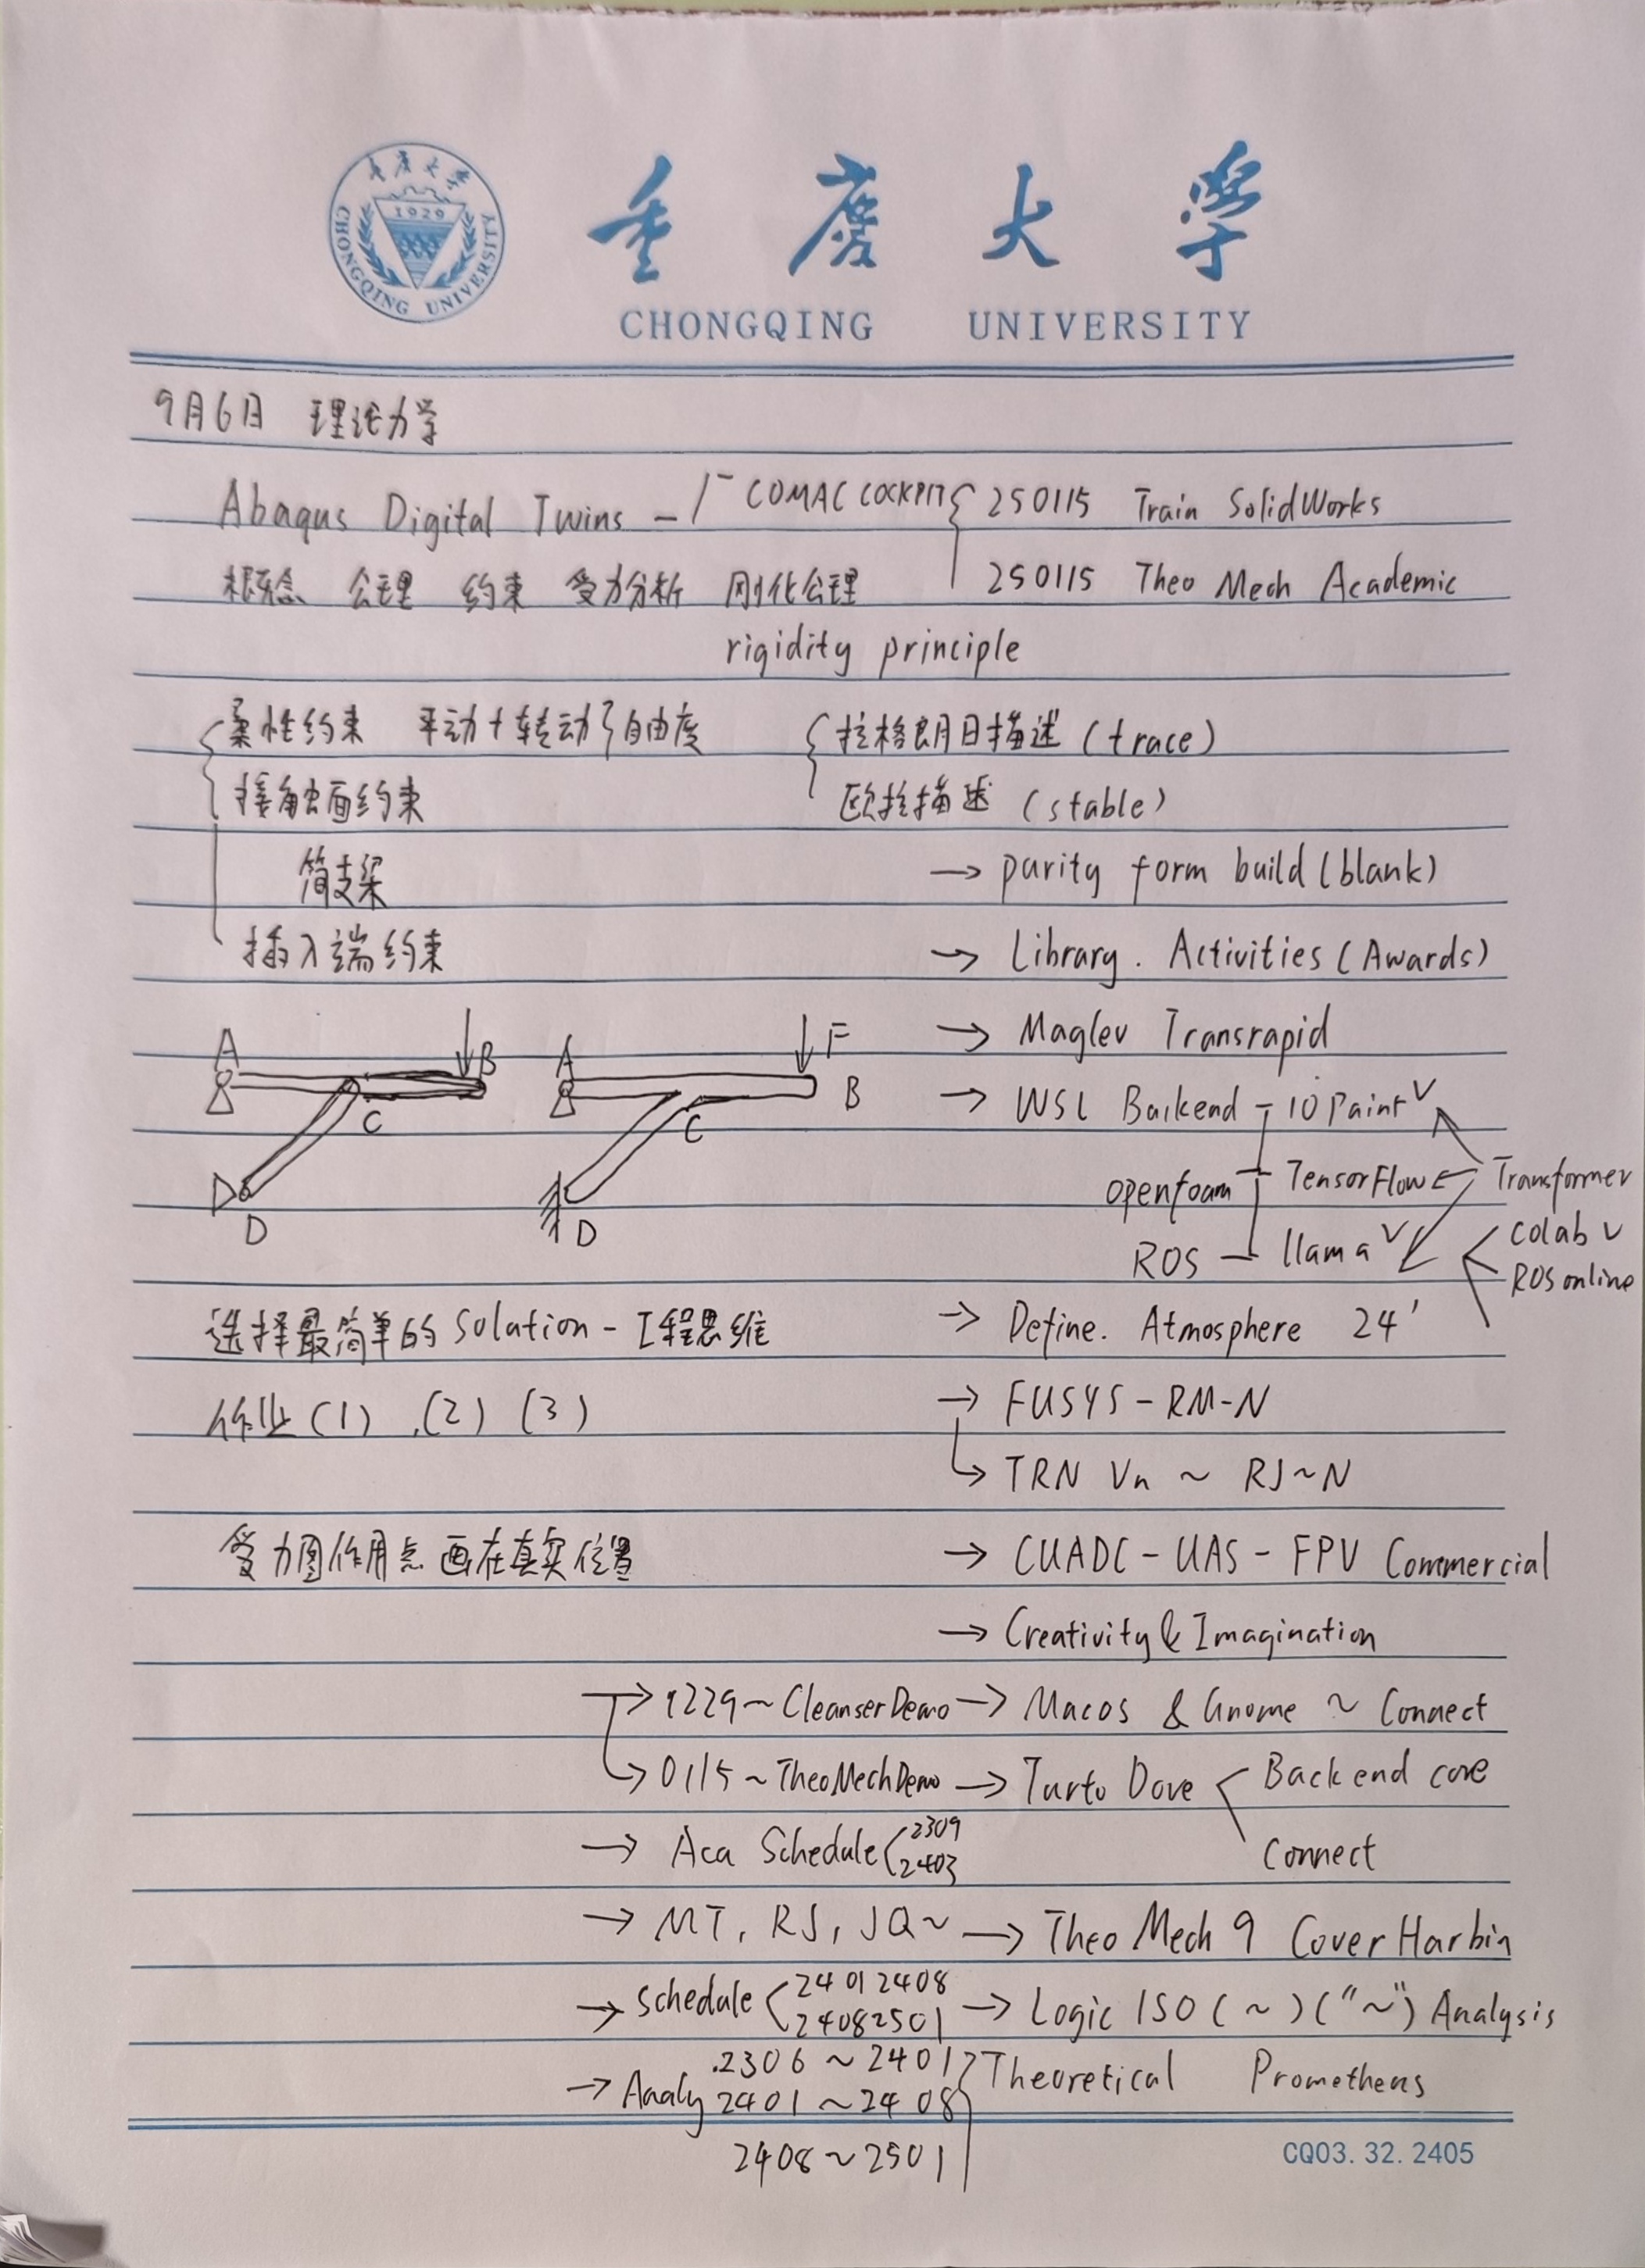 重庆大学
1929
CHONGQING UNIVERSITY
重庆大学
CHONGQING UNIVERSITY
9月6日 理论力学
Abaqus Digital Twins - COMAC COCKPIT 250115 Train SolidWorks
概念 公理 约束 受力分析 刚化公理 250115 Theo Mech Academic
rigidity principle
柔性约束 平动+转动 自由度 拉格朗日描述 (trace)
接触面约束 欧拉描述 (stable)
简支梁 → purity form build (blank)
插入端约束 → Library. Activities (Awards)
A B C D
A F B C D
→ Maglev Transrapid
→ WSL Backend - 10 Paint √
openfoam TensorFlow Transformer
ROS - llama √ Colab √
ROS online
选择最简单的 Solution - 工程思维 → Define. Atmosphere 24'
作业 (1) .(2) (3) → FUSYS - RM-N
→ TRN Vn ~ RJ~N
受力图作用点画在真实位置 → CUADC - UAS - FPV Commercial
→ Creativity & Imagination
→ 1229 ~ Cleanser Demo → Macos & Gnome ~ Connect
→ 0115 ~ TheoMech Demo → Turto Dove Backend core
→ Aca Schedule 2309 2403 Connect
→ MT, RJ, JQ~ → Theo Mech 9 Cover Harbin
→ Schedule 24012408 24082501 → Logic ISO (~) ("~") Analysis
→ Analy .2306 ~ 2401 Theoretical Prometheus
2401 ~ 2408
2408 ~ 2501
CQ03.32.2405